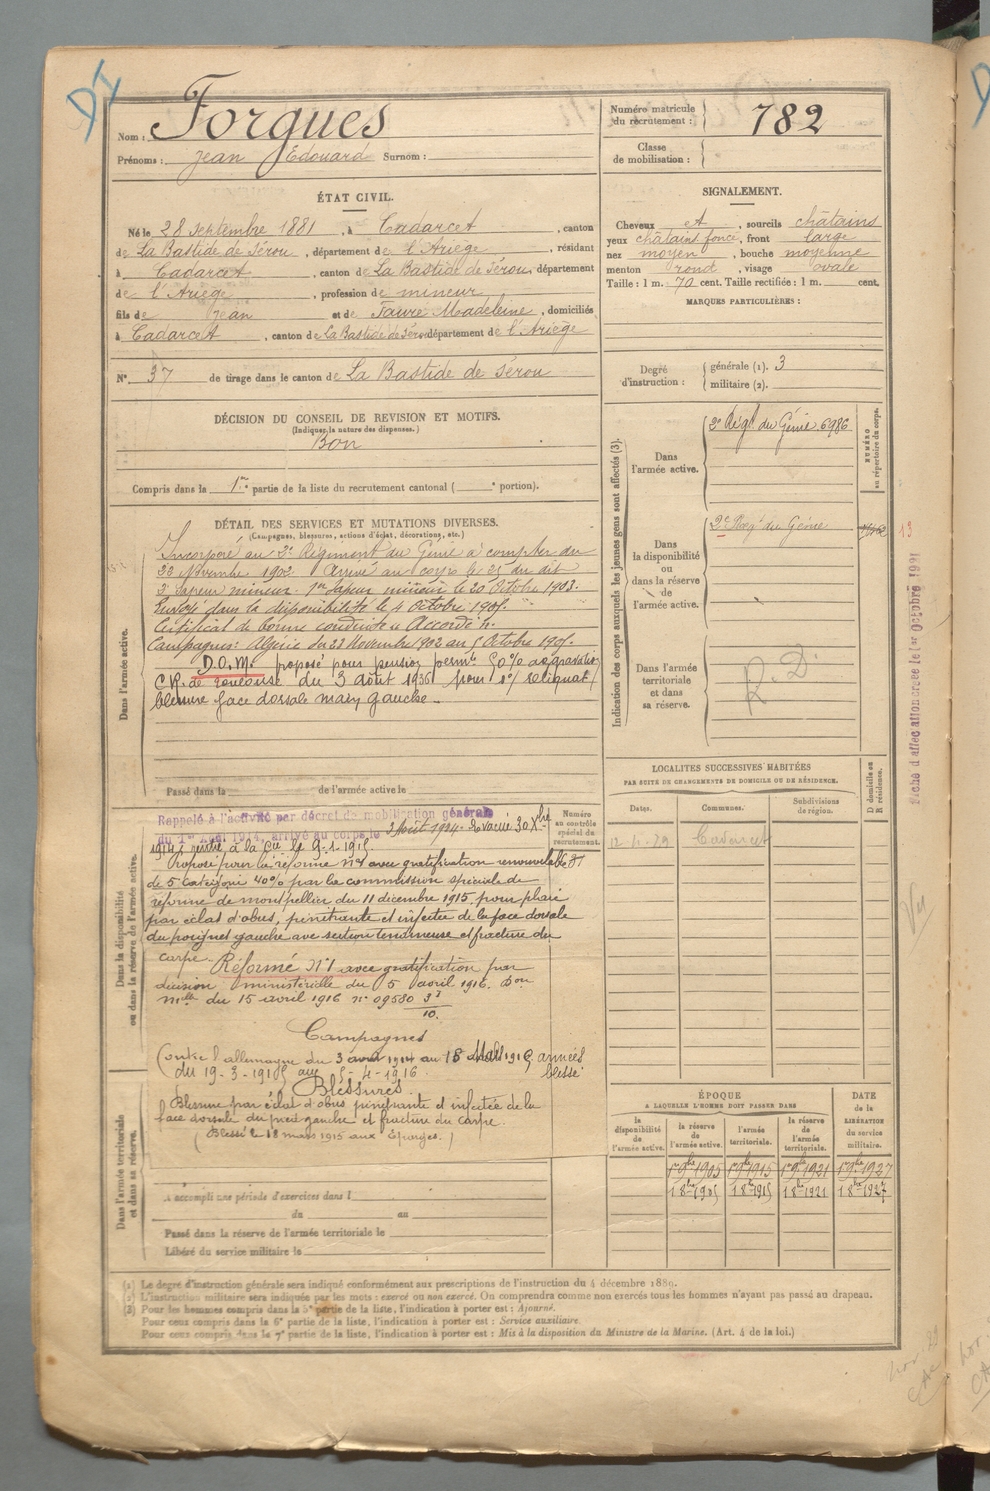 Nom : Forgues
Prénoms : Jean Edouard Surnom :
Numéro matricule du recrutement : 782
Classe de mobilisation :
ÉTAT CIVIL.
Né le 28 septembre 1881, à Cadarcet, canton
de La Bastide de Sérou, département de l'Ariège, résidant
à Cadarcet, canton de La Bastide de Sérou, département
de l'Ariège, profession de mineur
fils de Jean et de Faure Madeleine, domiciliés
à Cadarcet, canton de La Bastide de Sérou département de l'Ariège
N° 37 de tirage dans le canton de La Bastide de Sérou
SIGNALEMENT.
Cheveux et, sourcils châtains
yeux châtains foncé, front large
nez moyen, bouche moyenne
menton rond, visage ovale
Taille : 1 m. 70 cent. Taille rectifiée : 1 m. cent.
MARQUES PARTICULIÈRES :
DÉCISION DU CONSEIL DE REVISION ET MOTIFS.
(Indiquer la nature des dispenses.)
Bon
Compris dans la 1re partie de la liste du recrutement cantonal ( e portion).
Degré d'instruction :
générale (1). 3
militaire (2).
DÉTAIL DES SERVICES ET MUTATIONS DIVERSES.
(Campagnes, blessures, actions d'éclat, décorations, etc.)
Dans l'armée active.
Incorporé au 2e Régiment du Génie à compter du
23 Novembre 1902. Arrivé au corps le 25 du dit
2e sapeur mineur. 1er sapeur mineur le 20 Octobre 1903.
Envoyé dans la disponibilité le 4 Octobre 1905.
Certificat de bonne conduite « Accordé ».
Campagnes: Algérie du 23 Novembre 1902 au 5 Octobre 1905.
D.O.M. proposé pour pension permte 50% aggravation
C.R. de Toulouse du 3 août 1936 pour 1°/ reliquat
blessure face dorsale main gauche.
Passé dans la de l'armée active le
Indication des corps auxquels les jeunes gens sont affectés (3).
NUMÉRO au répertoire du corps.
Dans l'armée active.
2e Régt du Génie. 6986
Dans la disponibilité ou dans la réserve de l'armée active.
2e Regt du Génie
13
Dans l'armée territoriale et dans sa réserve.
R. D.
Fiche d'affectation créée le 1er Octobre 1921
Dans la disponibilité ou dans la réserve de l'armée active.
Numéro au contrôle spécial du recrutement.
Rappelé à l'activité par décret de mobilisation générale
du 1er Août 1914, arrivé au corps le 3 Août 1914. Evacué 30 Xbre
1914, rentré à la Cie le 9-1-1915
Proposé pour la réforme n°1 avec gratification renouvelable
de 5e catégorie 40% par la commission spéciale de
réforme de montpellier du 11 décembre 1915 pour plaie
par éclat d'obus, pénétrante et infectée de la face dorsale
du poignet gauche avec section tendineuse et fracture du
carpe. Réformé N°1 avec gratification par
décision ministérielle du 5 avril 1916. Bon
mlle du 15 avril 1916 n° 09580
Campagnes
Contre l'allemagne du 3 août 1914 au 18 Mars 1915 armées
du 19-3-1915 au 5-4-1916 blessé
Blessures
Blessure par éclat d'obus pénétrante et infectée de la
face dorsale du poignet gauche et fracture du carpe.
(Blessé le 18 mars 1915 aux Eparges.)
Dans l'armée territoriale et dans sa réserve.
A accompli une période d'exercices dans l
du au
Passé dans la réserve de l'armée territoriale le
Libéré du service militaire le
LOCALITES SUCCESSIVES HABITÉES
PAR SUITE DE CHANGEMENTS DE DOMICILE OU DE RÉSIDENCE.
Dates. Communes. Subdivisions de région. D domicile ou R résidence.
Cadarcet
ÉPOQUE
A LAQUELLE L'HOMME DOIT PASSER DANS
la disponibilité de l'armée active.
la réserve de l'armée active.
l'armée territoriale.
la réserve de l'armée territoriale.
DATE de la LIBÉRATION du service militaire.
1er 9bre 1905 1er 9bre 1915 1er 9bre 1921 1er 9bre 1927
1 8bre 1905 1 8bre 1915 1 8bre 1921 1 8bre 1927
(1) Le degré d'instruction générale sera indiqué conformément aux prescriptions de l'instruction du 4 décembre 1889.
(2) L'instruction militaire sera indiquée par les mots : exercé ou non exercé. On comprendra comme non exercés tous les hommes n'ayant pas passé au drapeau.
(3) Pour les hommes compris dans la 5e partie de la liste, l'indication à porter est : Ajourné.
Pour ceux compris dans la 6e partie de la liste, l'indication à porter est : Service auxiliaire.
Pour ceux compris dans la 7e partie de la liste, l'indication à porter est : Mis à la disposition du Ministre de la Marine. (Art. 4 de la loi.)